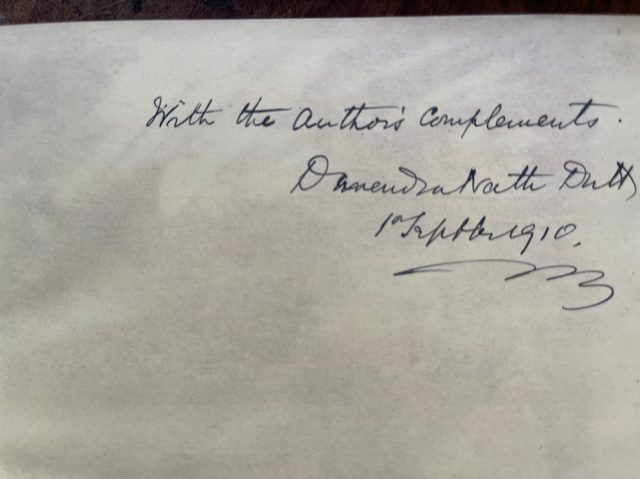 With the Author's Complements.
Davendra Nath Dutt
1st Septber 1910.